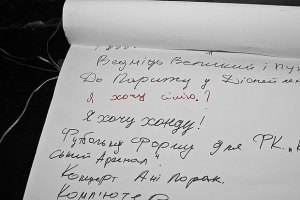 Ведмідь Великий і Пух
До Парижу у Діснейлен
Я хочу сілію?
Я хочу хонду!
Футбольну форму для ФК "К
ський Арсенал"
Концерт Ані Лорак.
Комп'юте